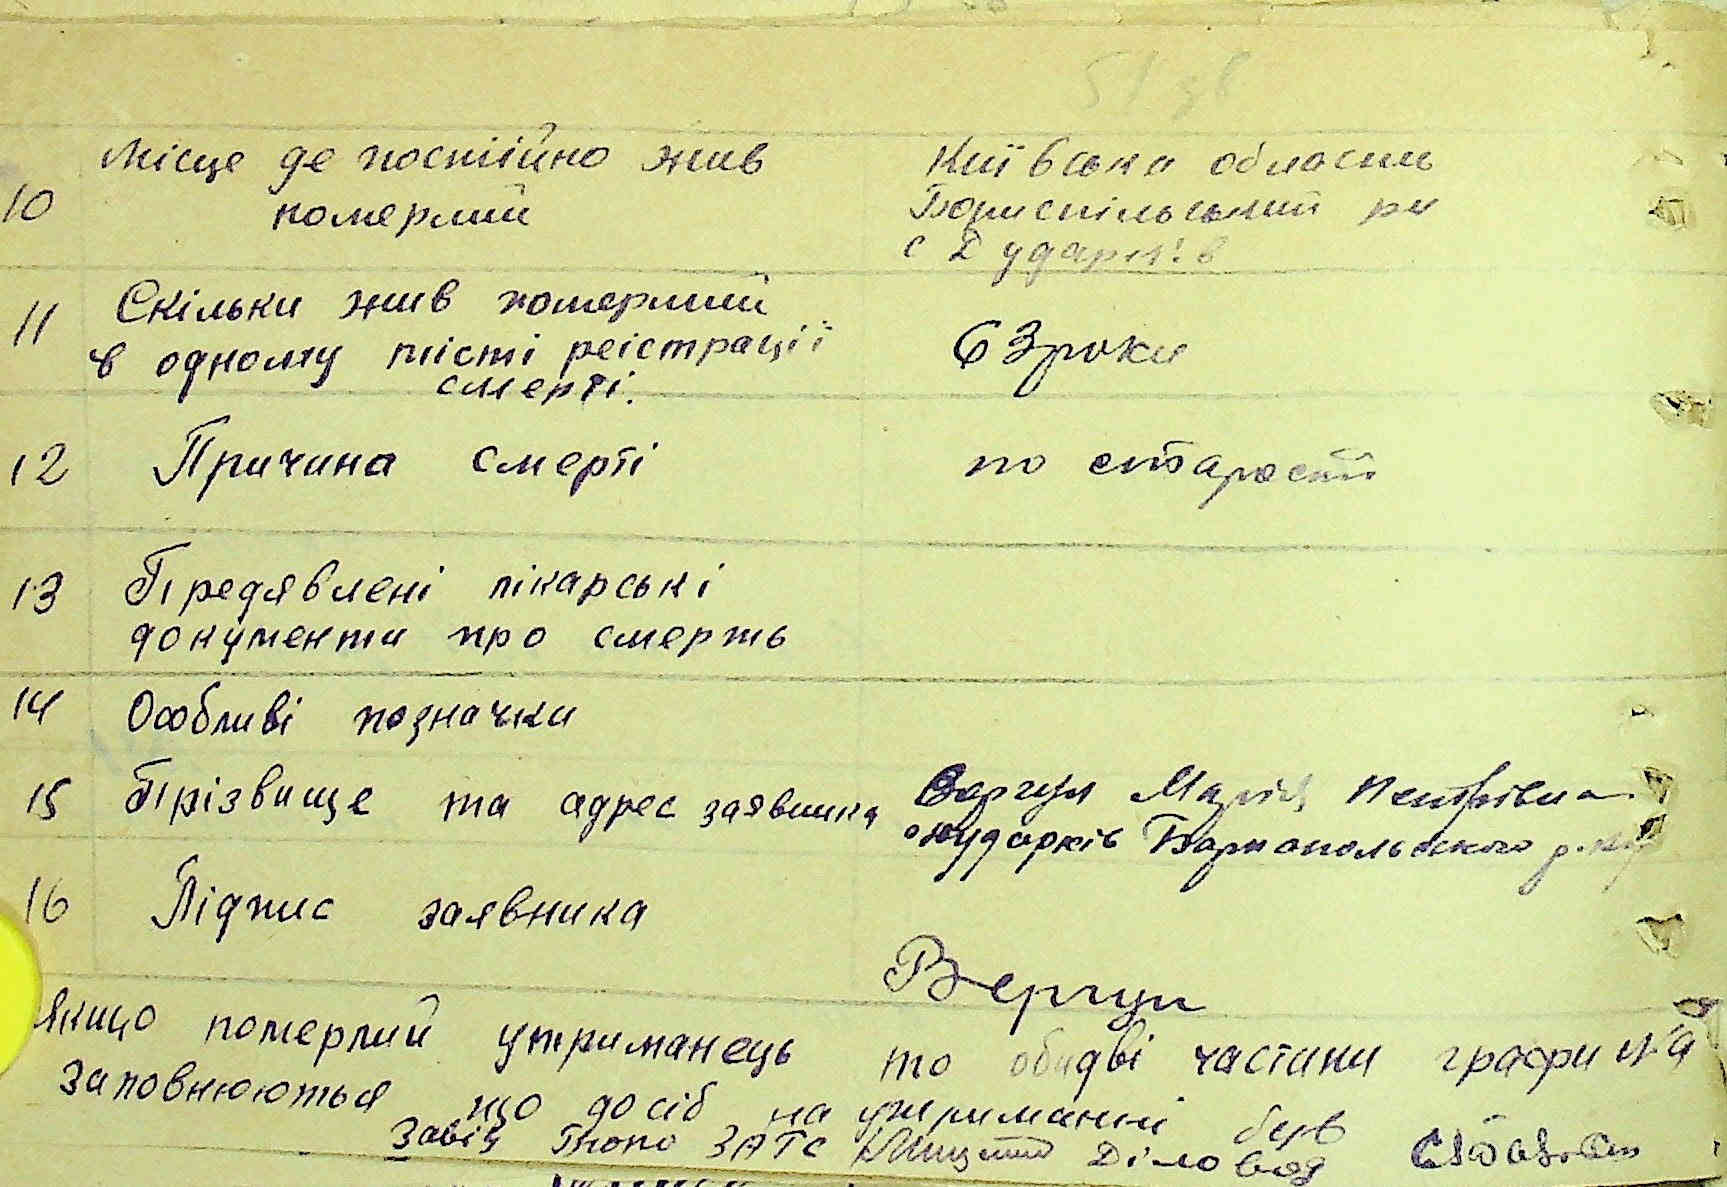 51 зв
Місце де постійно жив Київська область
10 померлий Бориспільський рн
с Дударків
11 Скільки жив померлий
в одному місті реістрації 63 роки
смерті.
12 Причина смерті по старості
13 Предявлені лікарські
документи про смерть
14 Особливі позначки
15 Прізвище та адрес заявника Вергун Марія Петрівна
Дударків
16 Підпис заявника
Вергун
Якщо померлий утриманець то обидві частини графи №9
заповнюються що досіб на утриманні був
Завід Бюро ЗАГС Діловод